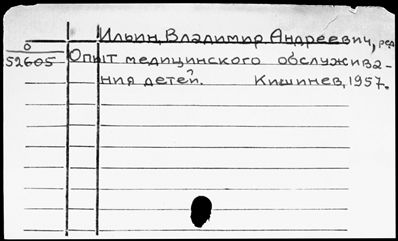 Ильин, Владимир Андреевич, ред.
О
52605
Опыт медицинского обслужива-
ния детей. Кишинев, 1957.